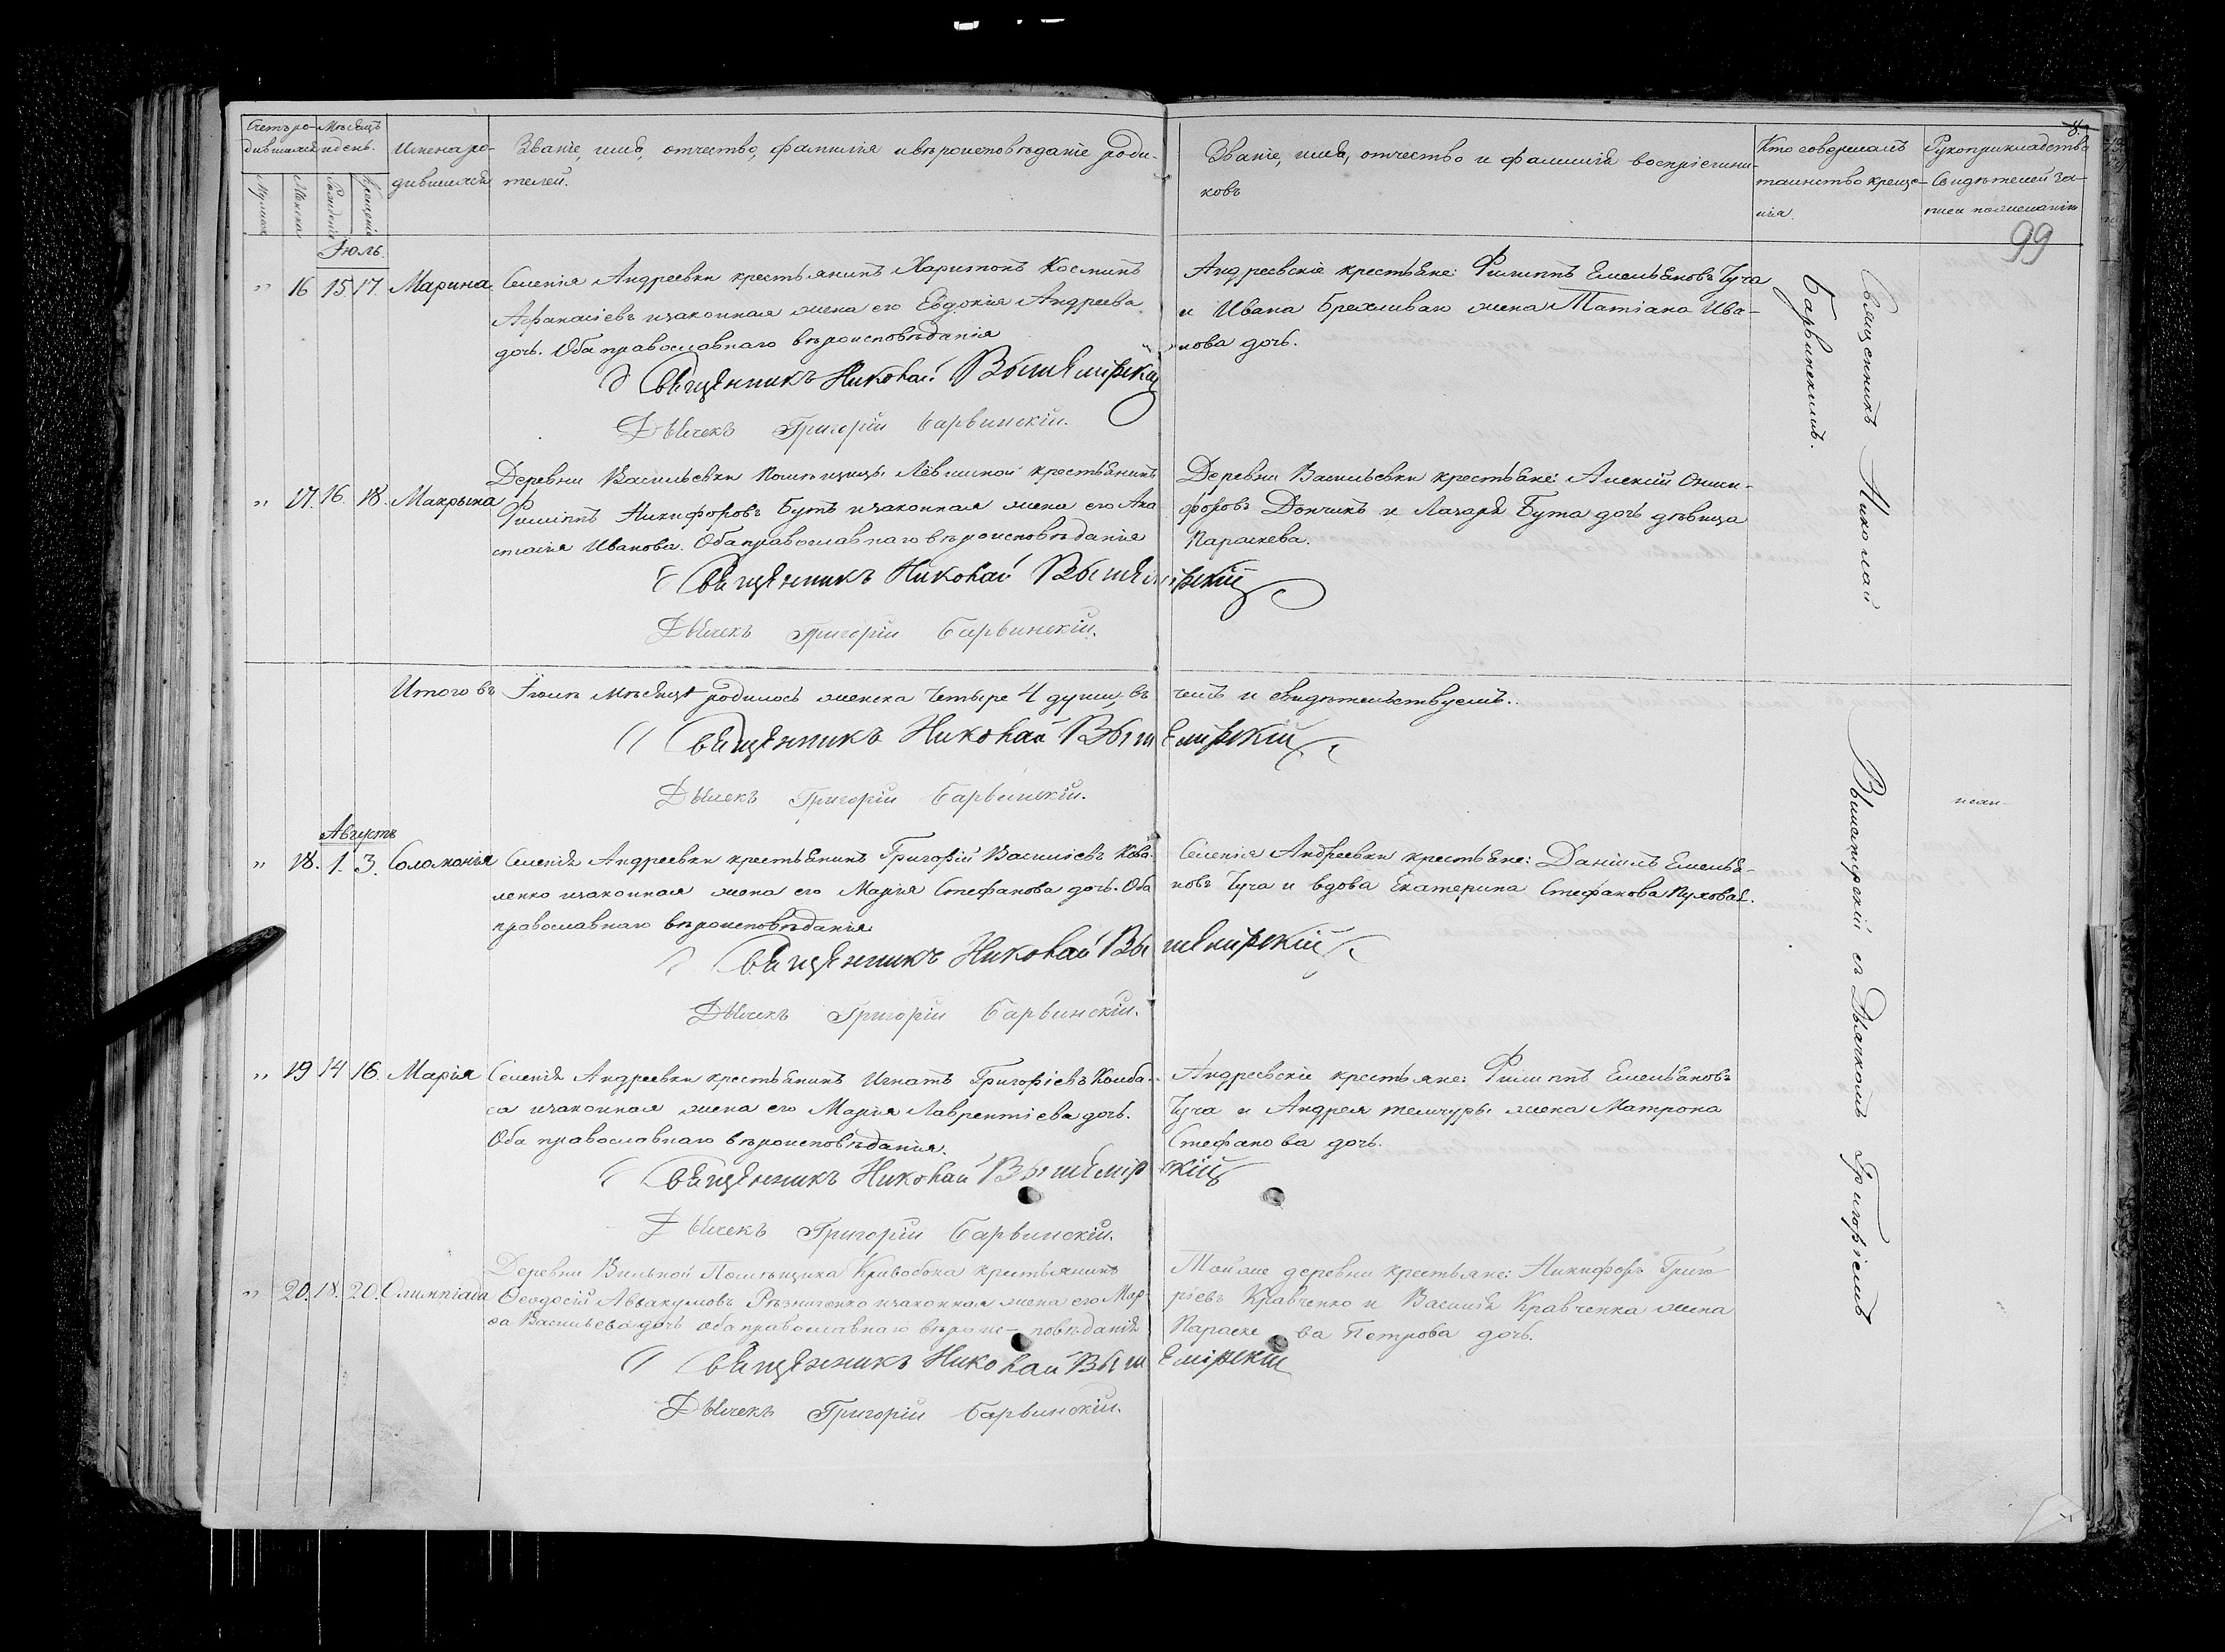 8.
99
Счетъ ро- Мѣсяцъ
дившихся и день.
Имена ро-
дившихся
Званіе, имя, отчество, фамилія и вѣроисповѣданіе роди-
телей.
Званіе, имя, отчество и фамилія воспріемни-
ковъ
Кто совершалъ
таинство креще-
нія.
Рукоприкладство
Свидѣтелей за-
писи по желанію
Мужеска
Женска
Рожденія
Крещенія
Іюль.
" 16 15 17. Марина
Селенія Андреевки крестьянинъ Харитонъ Косминъ
Афанасіевъ и законная жена его Евдокія Андреева
дочь. Оба православнаго вѣроисповѣданія
Священникъ Николай Вышемірскій
Дьячекъ Григорій Барвинскій.
Андреевскіе крестьяне: Филиппъ Емельяновъ Туча
и Ивана Брехливаго жена Татіана Ива-
нова дочь.
" 17. 16. 18. Макрына
Деревни Васильевки Помѣщицы Левшиной крестьянинъ
Филиппъ Никифоровъ Бутъ и законная жена его Ана
стасія Иванова. Оба православнаго вѣроисповѣданія
Священникъ Николай Вышемірскій
Дьячекъ Григорій Барвинскій.
Деревни Васильевки крестьяне: Алексій Ониси-
форовъ Дончикъ и Лазаря Бута дочь дѣвица
Параскева.
Итого въ Іюлѣ мѣсяцѣ родилось женска четыре 4 души, въ чемъ и свидѣтельствуемъ..
Священникъ Николай Вышемірскій
Дьячекъ Григорій Барвинскій.
Августъ
" 18. 1. 3. Соломонія
Селенія Андреевки крестьянинъ Григорій Василіевъ Кова-
ленко и законная жена его Марія Стефанова дочь. Оба
православнаго вѣроисповѣданія
Священникъ Николай Вышемірскій
Дьячекъ Григорій Барвинскій.
Селенія Андреевки крестьяне: Даніилъ Емелья-
новъ Туча и вдова Екатерина Стефанова Пуховая.
" 19 14 16. Марія
Селенія Андреевки крестьянинъ Игнатъ Григоріевъ Колба-
са и законная жена его Марія Лаврентіева дочь.
Оба православнаго вѣроисповѣданія.
Священникъ Николай Вышемірскій
Дьячекъ Григорій Барвинскій.
Андреевскіе крестьяне: Филиппъ Емельяновъ
Туча и Андрея жена Матрона
Стефанова дочь.
" 20. 18. 20. Олимпіада
Деревни Вильной Помѣщика Кривобока крестьянинъ
Ѳеодосій Аввакумовъ Рѣзниченко и законная жена его Мар-
ѳа Васильева дочь оба православнаго вѣроис-повѣданія
Священникъ Николай Вышемірскій
Дьячекъ Григорій Барвинскій.
Той же деревни крестьяне: Никифоръ Григо
ріевъ Кравченко и Василія Кравченка жена
Параскева Петрова дочь.
Священникъ Николай Вышемірскій съ Дьячкомъ Григоріемъ
Барвинскимъ.